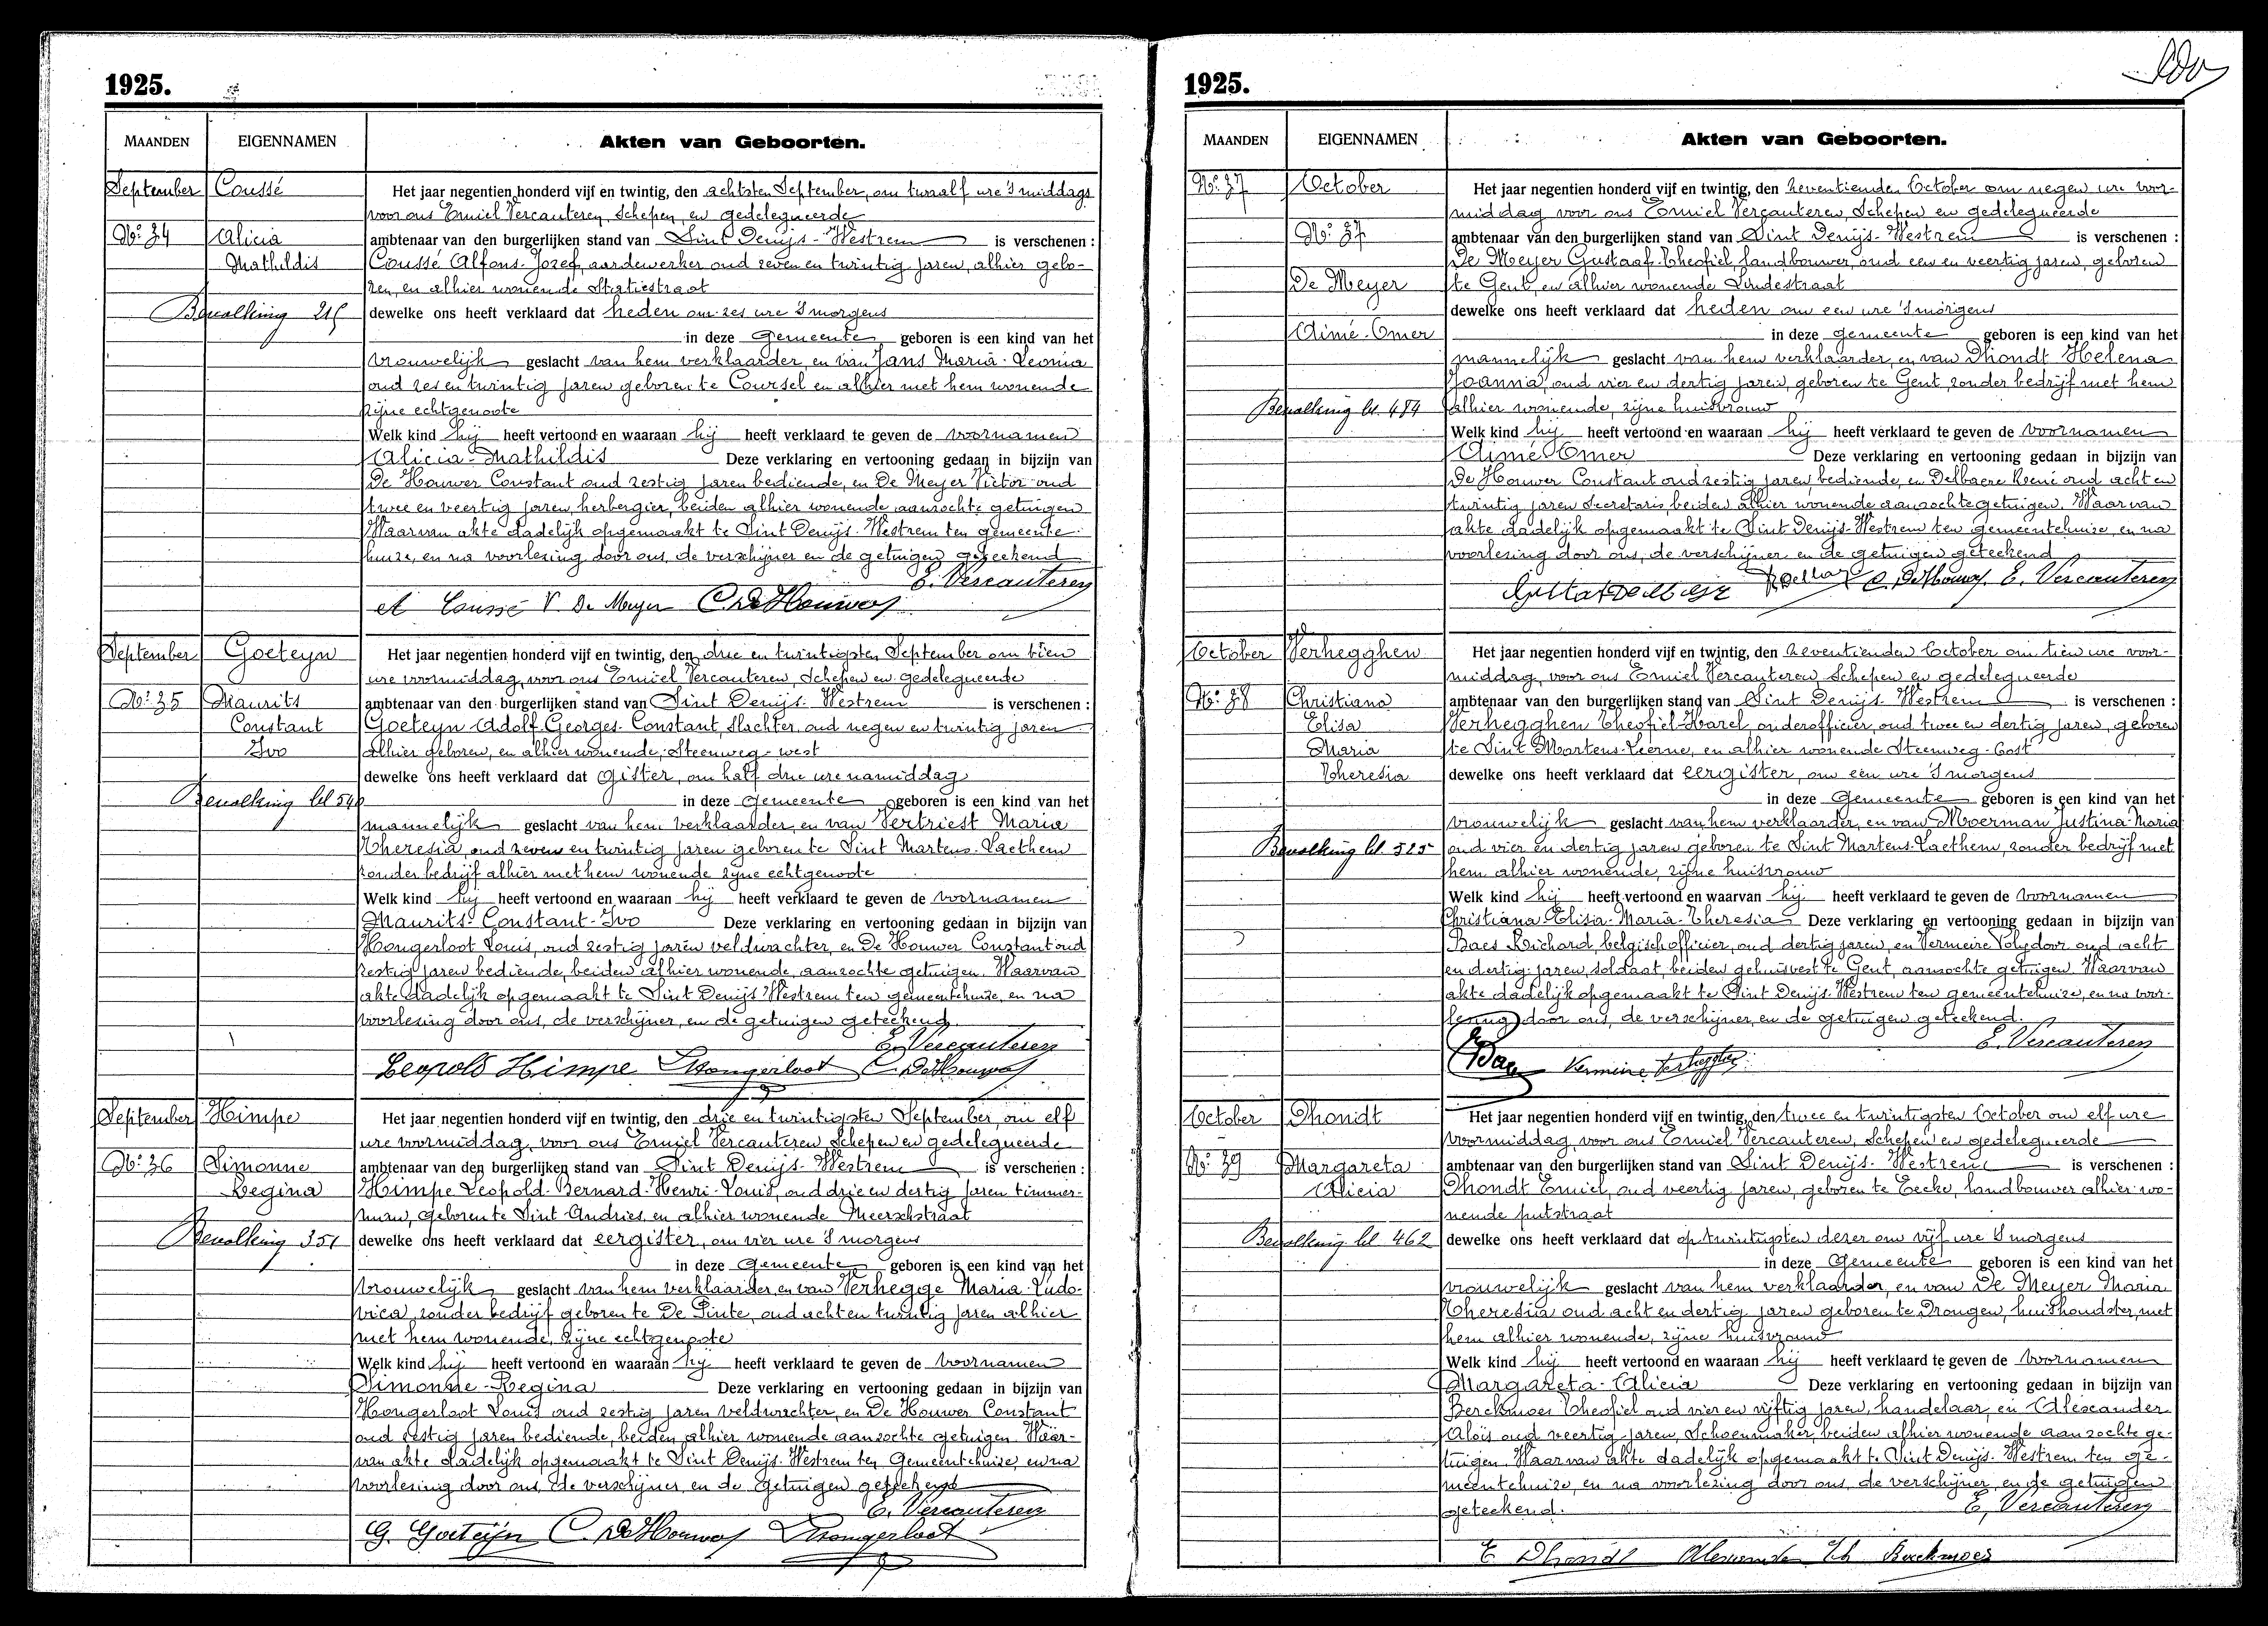 1925.
MAANDEN EIGENNAMEN Akten van Geboorten.
September Coussé Het jaar negentien honderd vijf en twintig, den achtsten September, om twaalf ure 's middags
voor ons Emiel Vercauteren, Schepen, en gedelegueerde
No: 34 Alicia ambtenaar van den burgerlijken stand van Sint Denijs-Westrem is verschenen :
Mathildis Coussé Alfons-Jozef, aardewerker oud zeven en twintig jaren, alhier gebo-
ren, en alhier wonende Statiestraat
Bevolking 215 dewelke ons heeft verklaard dat heden om zes ure 's morgens
in deze gemeente geboren is een kind van het
vrouwelijk geslacht van hem verklaarder, en van Jans Maria-Leonia
oud zes en twintig jaren geboren te Coursel en alhier met hem wonende
zijne echtgenoote
Welk kind hij heeft vertoond en waaraan hij heeft verklaard te geven de voornamen
Alicia-Mathildis Deze verklaring en vertooning gedaan in bijzijn van
De Houwer Constant oud zestig jaren bediende, en De Meyer Victor oud
twee en veertig jaren, herbergier, beiden alhier wonende aanzochte getuigen
Waarvan akte dadelijk opgemaakt te Sint Denijs-Westrem ten gemeente-
huize, en na voorlezing door ons, de verschijner en de getuigen geteekend
E. Vercauteren
A Coussé V. De Meyer C. De Houwer
September Goeteyn Het jaar negentien honderd vijf en twintig, den drie en twintigsten September om tien
ure voormiddag, voor ons Emiel Vercauteren, Schepen en gedelegueerde
No: 35 Maurits ambtenaar van den burgerlijken stand van Sint Denijs-Westrem is verschenen :
Constant Goeteyn Adolf-Georges-Constant, slachter, oud negen en twintig jaren
Ivo alhier geboren, en alhier wonende, Steenweg-west
dewelke ons heeft verklaard dat gister, om half drie ure namiddag
Bevolking bl 540 in deze gemeente geboren is een kind van het
mannelijk geslacht van hem verklaarder, en van Vertriest Maria
Theresia, oud zeven en twintig jaren geboren te Sint Martens-Laethem
zonder bedrijf alhier met hem wonende zijne echtgenoote
Welk kind hij heeft vertoond en waaraan hij heeft verklaard te geven de voornamen
Maurits-Constant-Ivo Deze verklaring en vertooning gedaan in bijzijn van
Hongerloot Louis, oud zestig jaren veldwachter, en De Houwer Constant oud
zestig jaren bediende, beiden alhier wonende, aanzochte getuigen. Waarvan
akte dadelijk opgemaakt te Sint Denijs Westrem ten gemeentehuize, en na
voorlezing door ons, de verschijner, en de getuigen geteekend.
E. Vercauteren
Leopold Himpe L Hongerloot C. De Houwer
September Himpe Het jaar negentien honderd vijf en twintig, den drie en twintigsten September, om elf
ure voormiddag, voor ons Emiel Vercauteren Schepen en gedelegueerde
No: 36 Simonne ambtenaar van den burgerlijken stand van Sint Denijs-Westrem is verschenen :
Regina Himpe Leopold-Bernard-Henri-Louis, oud drie en dertig jaren timmer-
man, geboren te Sint-Andries, en alhier wonende Meerschstraat
Bevolking 351 dewelke ons heeft verklaard dat eergister, om vier ure 's morgens
in deze Gemeente geboren is een kind van het
vrouwelijk geslacht van hem verklaarder, en van Verhegge Maria-Ludo-
vica, zonder bedrijf geboren te De Pinte, oud acht en twintig jaren alhier
met hem wonende, zijne echtgenoote
Welk kind hij heeft vertoond en waaraan hij heeft verklaard te geven de voornamen
Simonne-Regina Deze verklaring en vertooning gedaan in bijzijn van
Hongerloot Louis oud zestig jaren veldwachter, en De Houwer Constant
oud zestig jaren bediende, beiden alhier wonende aanzochte getuigen. Waar-
van akte dadelijk opgemaakt te Sint Denijs-Westrem ten Gemeentehuize, en na
voorlezing door ons, de verschijner, en de getuigen geteekend
E. Vercauteren
G. Goeteijn C. De Houwer L Hongerloot
1925.
MAANDEN EIGENNAMEN Akten van Geboorten.
No: 37 October Het jaar negentien honderd vijf en twintig, den zeventienden October om negen ure voor-
middag voor ons Emiel Vercauteren, Schepen en gedelegueerde
No: 37 ambtenaar van den burgerlijken stand van Sint Denijs-Westrem is verschenen :
De Meyer Gustaaf-Theofiel, landbouwer, oud een en veertig jaren, geboren
De Meyer te Gent, en alhier wonende Lindestraat
dewelke ons heeft verklaard dat heden om een ure 's morgens
Aimé-Omer in deze gemeente geboren is een kind van het
mannelijk geslacht van hem verklaarder, en van Dhondt Helena
Joanna, oud vier en dertig jaren, geboren te Gent, zonder bedrijf met hem
Bevolking bl. 484 alhier wonende, zijne huisvrouw
Welk kind hij heeft vertoond en waaraan hij heeft verklaard te geven de voornamen
Aimé Omer Deze verklaring en vertooning gedaan in bijzijn van
De Houwer Constant oud zestig jaren, bediende, en Delbaere René oud acht en
twintig jaren Secretaris, beiden alhier wonende aanzochte getuigen. Waarvan
akte dadelijk opgemaakt te Sint Denijs-Westrem ten gemeentehuize, en na
voorlezing door ons, de verschijner en de getuigen geteekend
C. De Houwer E. Vercauteren
October Verhegghen Het jaar negentien honderd vijf en twintig, den zeventienden October om tien ure voor-
middag, voor ons Emiel Vercauteren, Schepen en gedelegueerde
No: 38 Christiana ambtenaar van den burgerlijken stand van Sint Denijs-Westrem is verschenen :
Elisa Verhegghen Theofiel-Karel, onderofficier, oud twee en dertig jaren, geboren
Maria te Sint Martens-Lierne, en alhier wonende Steenweg-Oost
Theresia dewelke ons heeft verklaard dat eergister, om een ure 's morgens
in deze Gemeente geboren is een kind van het
vrouwelijk geslacht van hem verklaarder, en van Moerman Justina-Maria
Bevolking bl. 525 oud vier en dertig jaren geboren te Sint Martens-Laethem, zonder bedrijf met
hem alhier wonende, zijne huisvrouw
Welk kind hij heeft vertoond en waarvan hij heeft verklaard te geven de voornamen
Christiana-Elisa-Maria-Theresia Deze verklaring en vertooning gedaan in bijzijn van
Baes Richard, belgisch officier, oud dertig jaren, en Vermeire Polydoor oud acht
en dertig jaren, soldaat, beiden gehuisvest te Gent, aanzochte getuigen. Waarvan
akte dadelijk opgemaakt te Sint Denijs-Westrem ten gemeentehuize, en na voor-
lezing door ons, de verschijner, en de getuigen geteekend.
E. Vercauteren
RBaes Vermeire Verhegghen
October Dhondt Het jaar negentien honderd vijf en twintig, den twee en twintigsten October om elf ure
voormiddag, voor ons Emiel Vercauteren, Schepen en gedelegueerde
No: 39 Margareta ambtenaar van den burgerlijken stand van Sint Denijs-Westrem is verschenen :
Alicia Dhondt Emiel, oud veertig jaren, geboren te Eecke, landbouwer alhier wo-
nende putstraat
Bevolking bl. 462 dewelke ons heeft verklaard dat op twintigsten dezer om vijf ure 's morgens
in deze Gemeente geboren is een kind van het
vrouwelijk geslacht van hem verklaarder, en van De Meyer Maria
Theresia oud acht en dertig jaren geboren te Drongen, huishoudster, met
hem alhier wonende, zijne huisvrouw
Welk kind hij heeft vertoond en waaraan hij heeft verklaard te geven de voornamen
Margareta-Alicia Deze verklaring en vertooning gedaan in bijzijn van
Berckmoes Theofiel oud vier en vijftig jaren, handelaar, en Alexander
Aloïs oud veertig jaren, Schoenmaker, beiden alhier wonende aanzochte ge-
tuigen. Waarvan akte dadelijk opgemaakt te Sint Denijs-Westrem ten ge-
meentehuize, en na voorlezing door ons, de verschijner, en de getuigen
geteekend. E. Vercauteren
E Dhondt Alexander Th Berckmoes